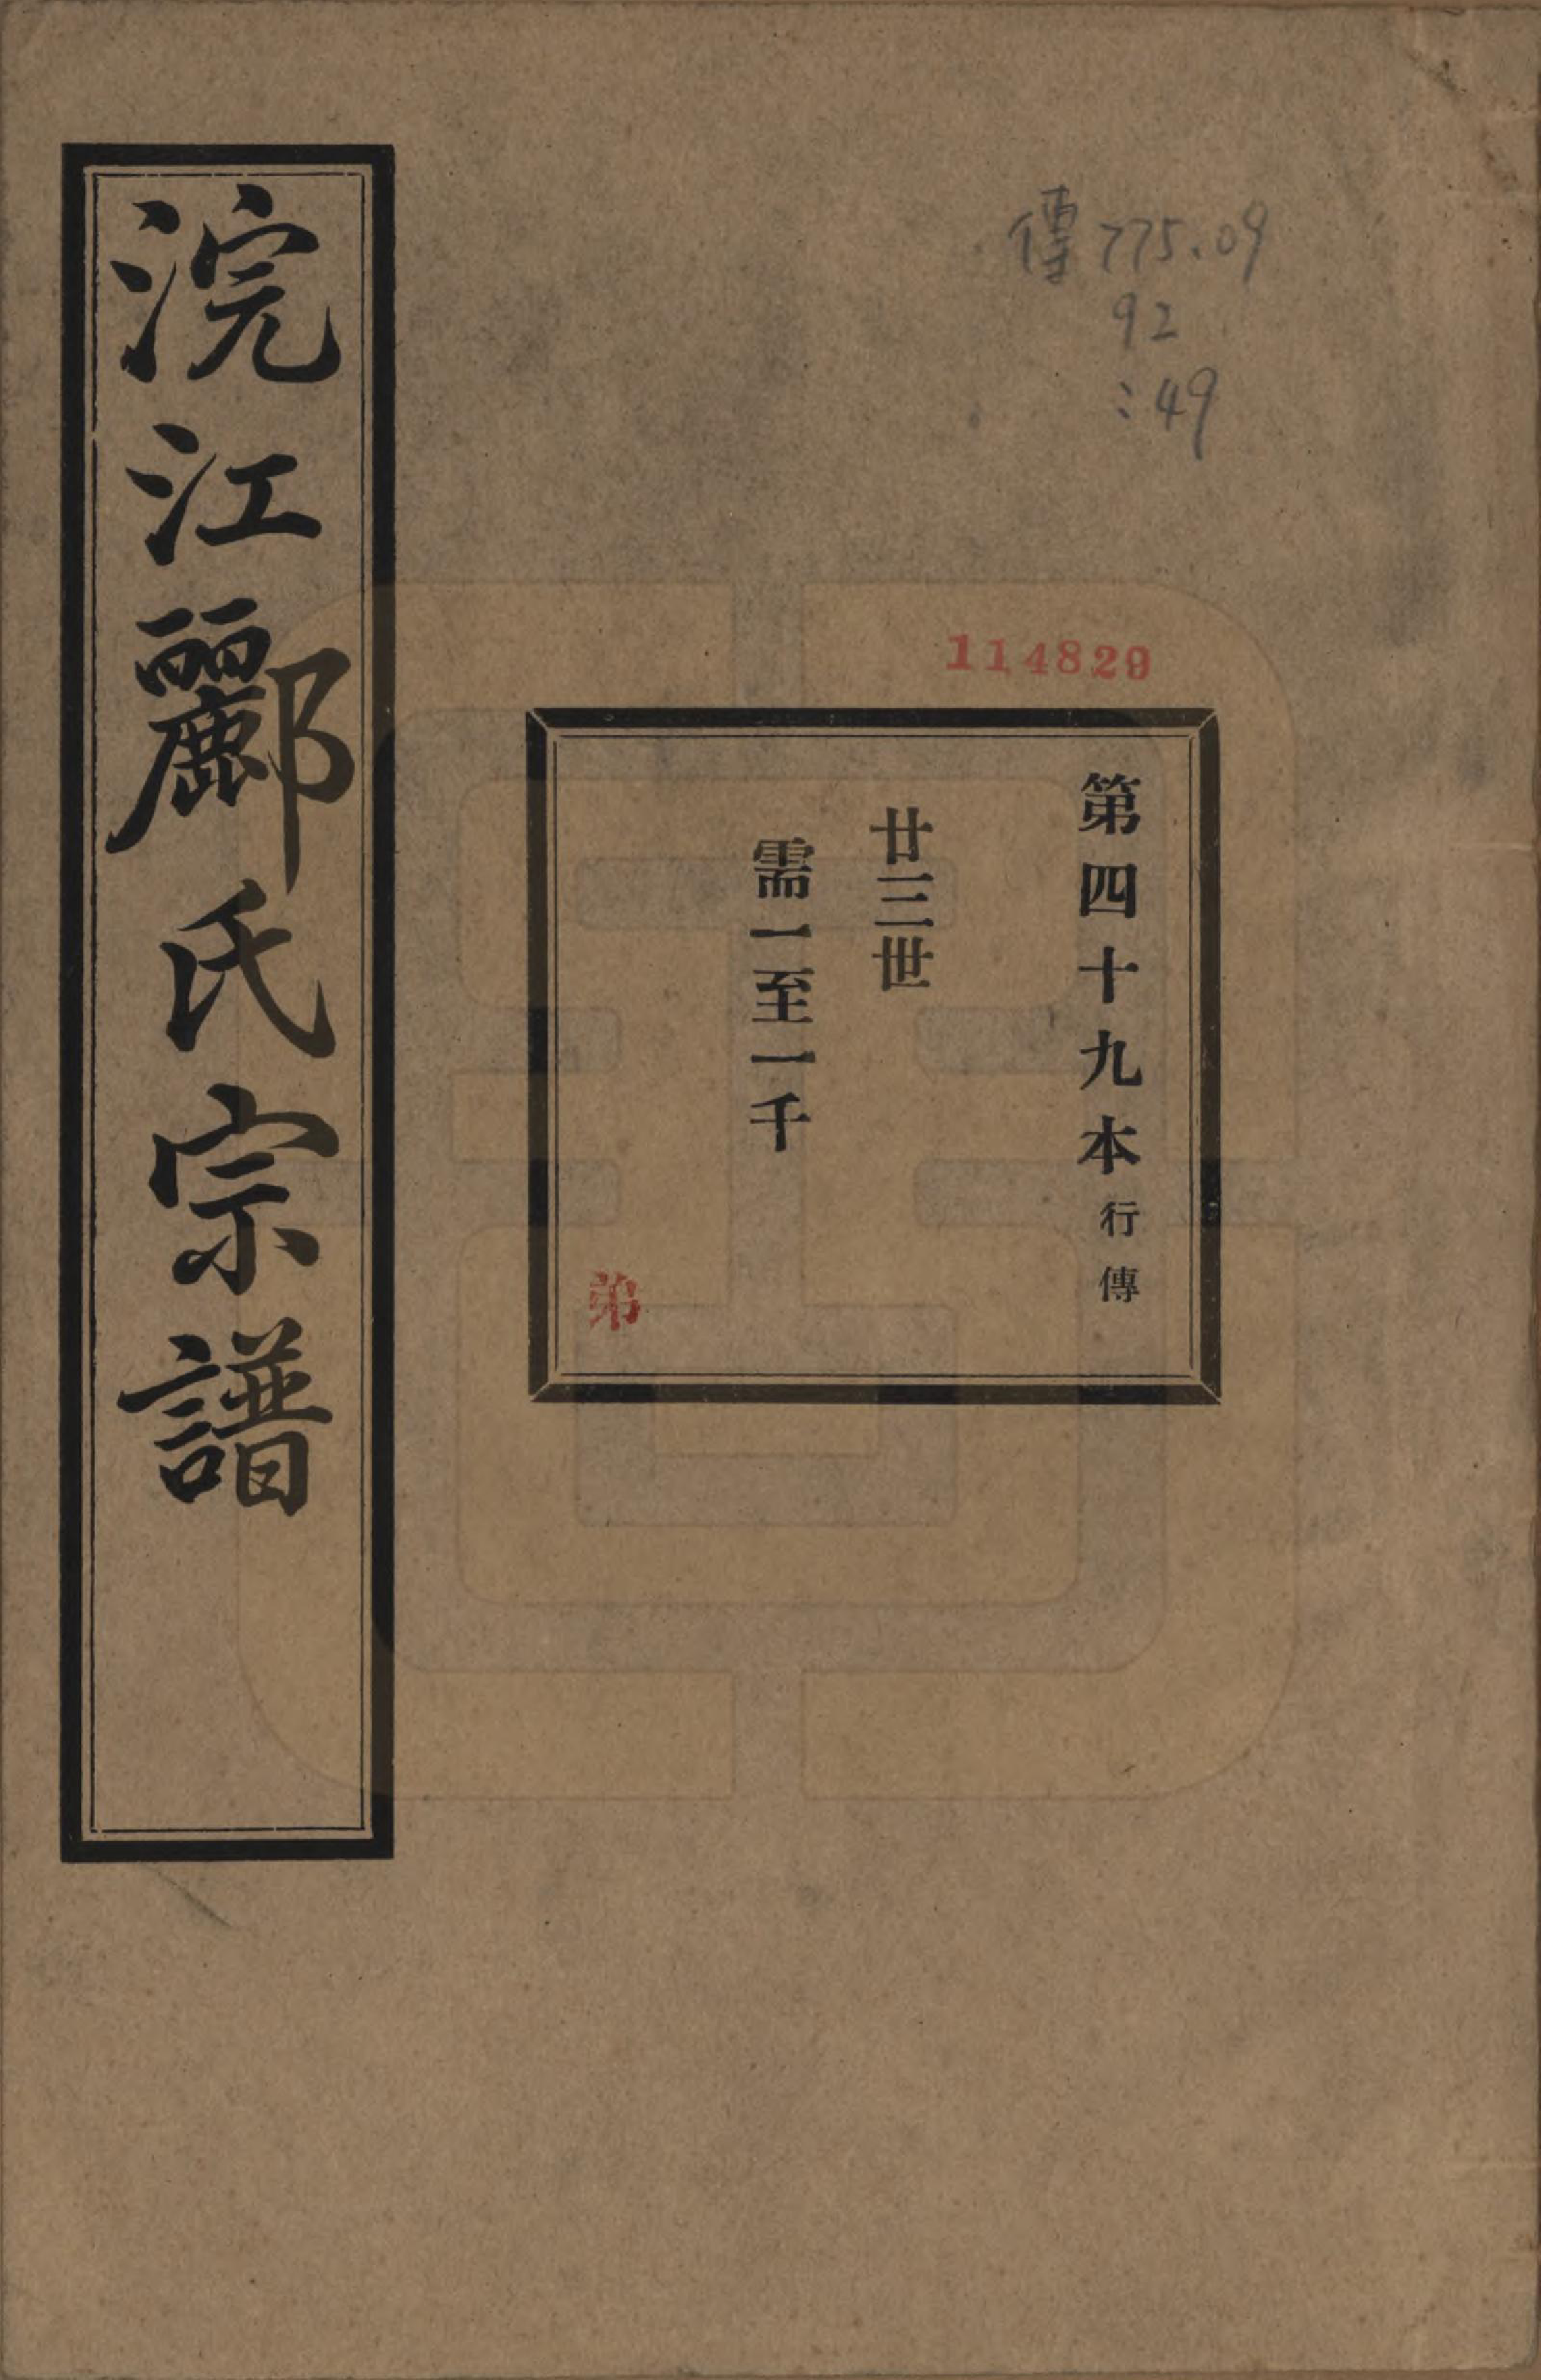 浣江酈氏宗譜
傳775.09
92
:49
114829
第四十九本行傳
廿三世
需一至一千
弟